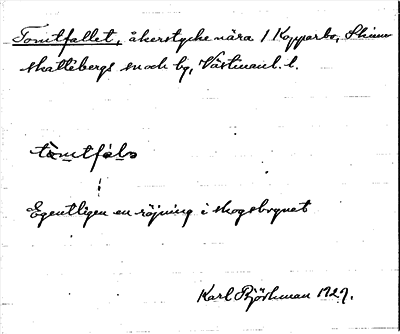 Tomtfallet, åkerstycke nära / Kopparbo, Skinn-
skattebergs sn och by, Västmanl. l.
tòmtfálə
Egentligen en röjning i skogsbrynet
Karl Björkman 1929.